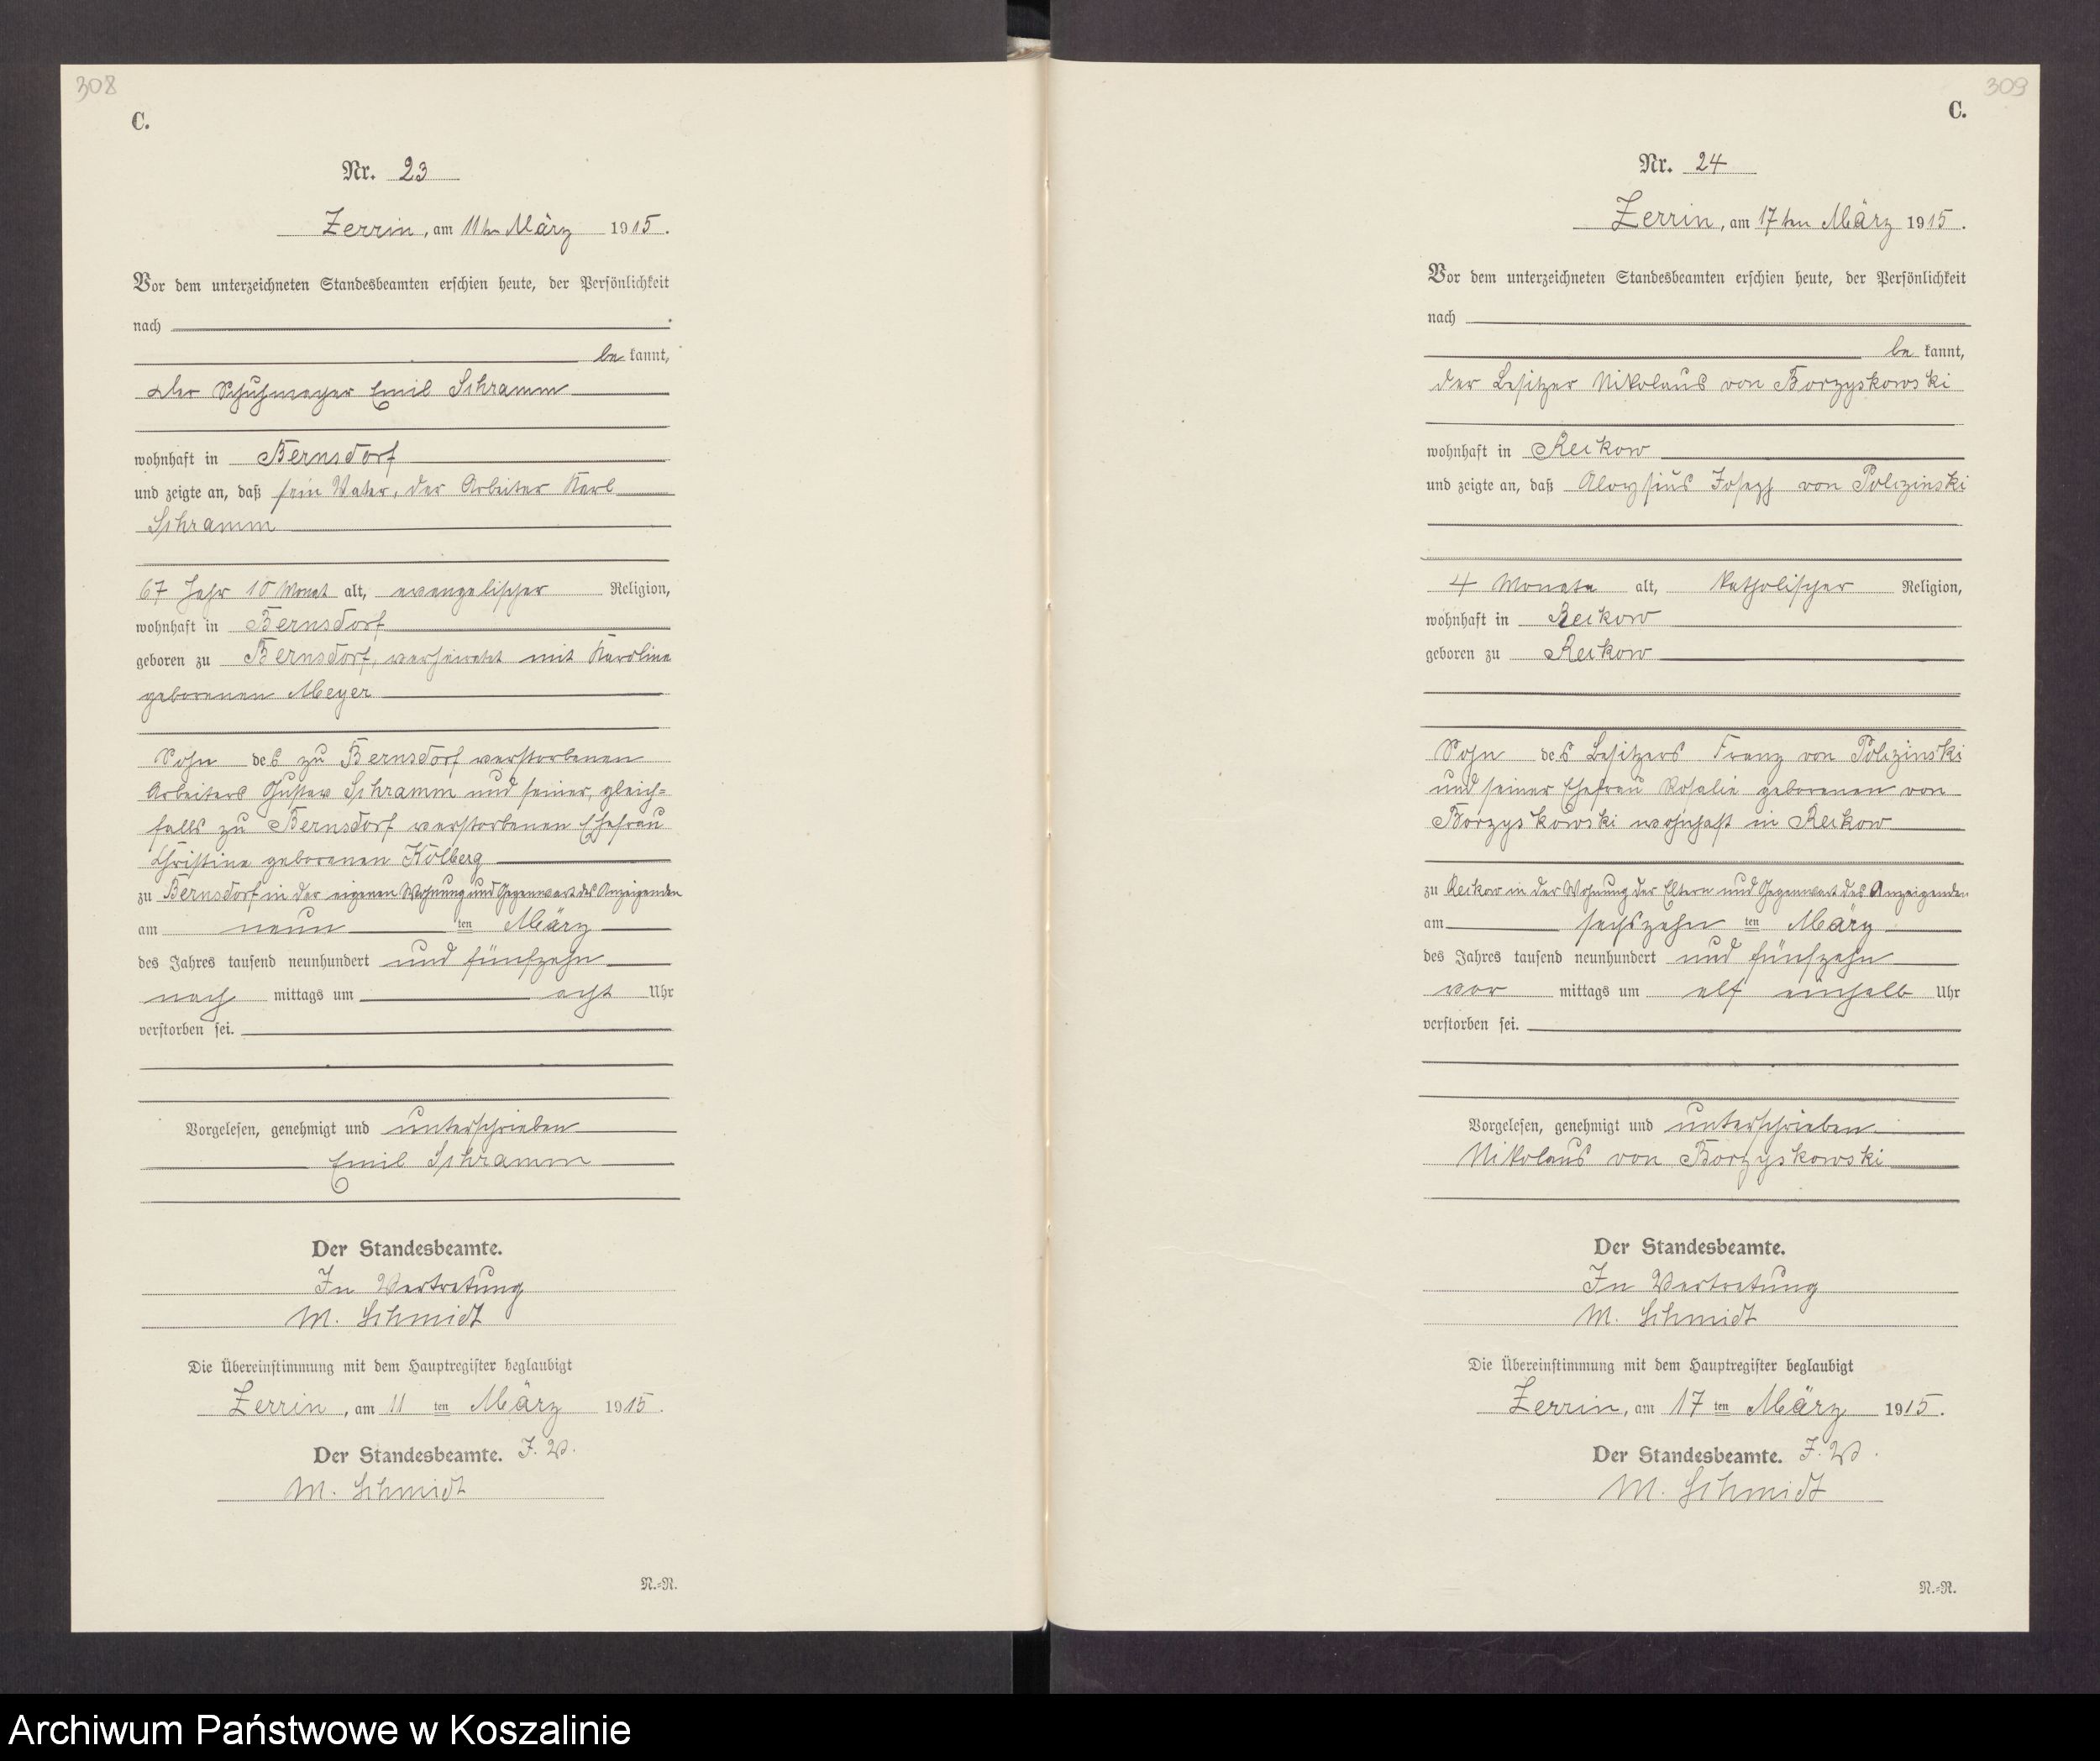 308
C.
Nr. 23
Zerrin, am 11ten März 1915.
Vor dem unterzeichneten Standesbeamten erschien heute, der Persönlichkeit
nach
be kannt,
der Emil Schramm
wohnhaft in Bernsdorf
und zeigte an, daß sein Vater, der Arbeiter Karl
Schramm
67 Jahr 10 Monat alt, evangelischer Religion,
wohnhaft in Bernsdorf
geboren zu Bernsdorf, verheiratet mit Karoline
geborenen Meyer
Sohn des zu Bernsdorf verstorbenen
Arbeiters Gustav Schramm und seiner, gleich=
falls zu Bernsdorf verstorbenen Ehefrau
Christine geborenen Kolberg
zu Bernsdorf in der eigenen Wohnung und Gegenwart des Anzeigenden
am neun ten März
des Jahres tausend neunhundert und fünfzehn
nach mittags um acht Uhr
verstorben sei.
Vorgelesen, genehmigt und unterschrieben
Emil Schramm
Der Standesbeamte.
In Vertretung
M. Schmidt
Die Übereinstimmung mit dem Hauptregister beglaubigt
Zerrin, am 11 ten März 1915.
Der Standesbeamte. J. V.
M. Schmidt
N.=R.
309
C.
Nr. 24
Zerrin, am 17ten März 1915.
Vor dem unterzeichneten Standesbeamten erschien heute, der Persönlichkeit
nach
be kannt,
der Besitzer Nikolaus von Borzyskowski
wohnhaft in Reckow
und zeigte an, daß Aloysius Joseph von Polczinski
4 Monate alt, katholischer Religion,
wohnhaft in Reckow
geboren zu Reckow
Sohn des Besitzers Franz von Polczinski
und seiner Ehefrau Rosalie geborenen von
Borzyskowski wohnhaft in Reckow
zu Reckow in der Wohnung der Eltern und Gegenwart des Anzeigenden
am sechszehn ten März
des Jahres tausend neunhundert und fünfzehn
vor mittags um elf einhalb Uhr
verstorben sei.
Vorgelesen, genehmigt und unterschrieben
Nikolaus von Borzyskowski
Der Standesbeamte.
In Vertretung
M. Schmidt
Die Übereinstimmung mit dem Hauptregister beglaubigt
Zerrin, am 17 ten März 1915.
Der Standesbeamte. J. V.
M. Schmidt
N.=R.
Archiwum Państwowe w Koszalinie